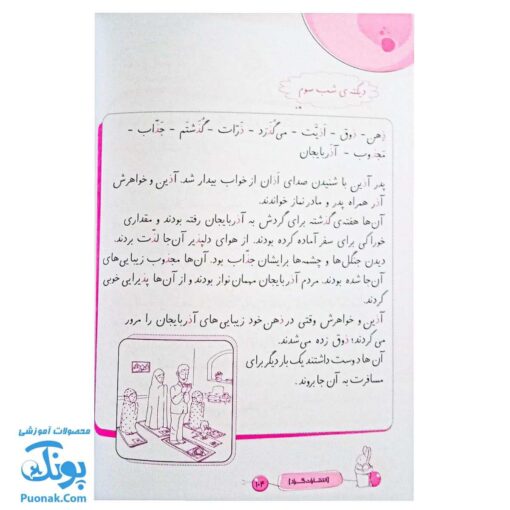 دیکته‌ی شب سوم
ذهن - ذوق - اذیّت - می‌گذرد - ذرّات - گذشتم - جذّاب -
مجذوب - آذربایجان
پدر آذین با شنیدن صدای اذان از خواب بیدار شد. آذین و خواهرش
آذر همراه پدر و مادر نماز خواندند.
آن‌ها هفته‌ی گذشته برای گردش به آذربایجان رفته بودند و مقداری
خوراکی برای سفر آماده کرده بودند. از هوای دلپذیر آن‌جا لذّت بردند.
دیدن جنگل‌ها و چشمه‌ها برایشان جذّاب بود. آن‌ها مجذوب زیبایی‌های
آن‌جا شده بودند. مردم آذربایجان مهمان نواز بودند و از آن‌ها پذیرایی خوبی
کردند.
آذین و خواهرش وقتی در ذهن خود زیبایی‌های آذربایجان را مرور
می‌کردند؛ ذوق زده می‌شدند.
آن‌ها دوست داشتند یک بار دیگر برای
مسافرت به آن جا بروند.
محصولات آموزشی
پونک
Puonak.Com
انتشارات گراد
۱۰۴